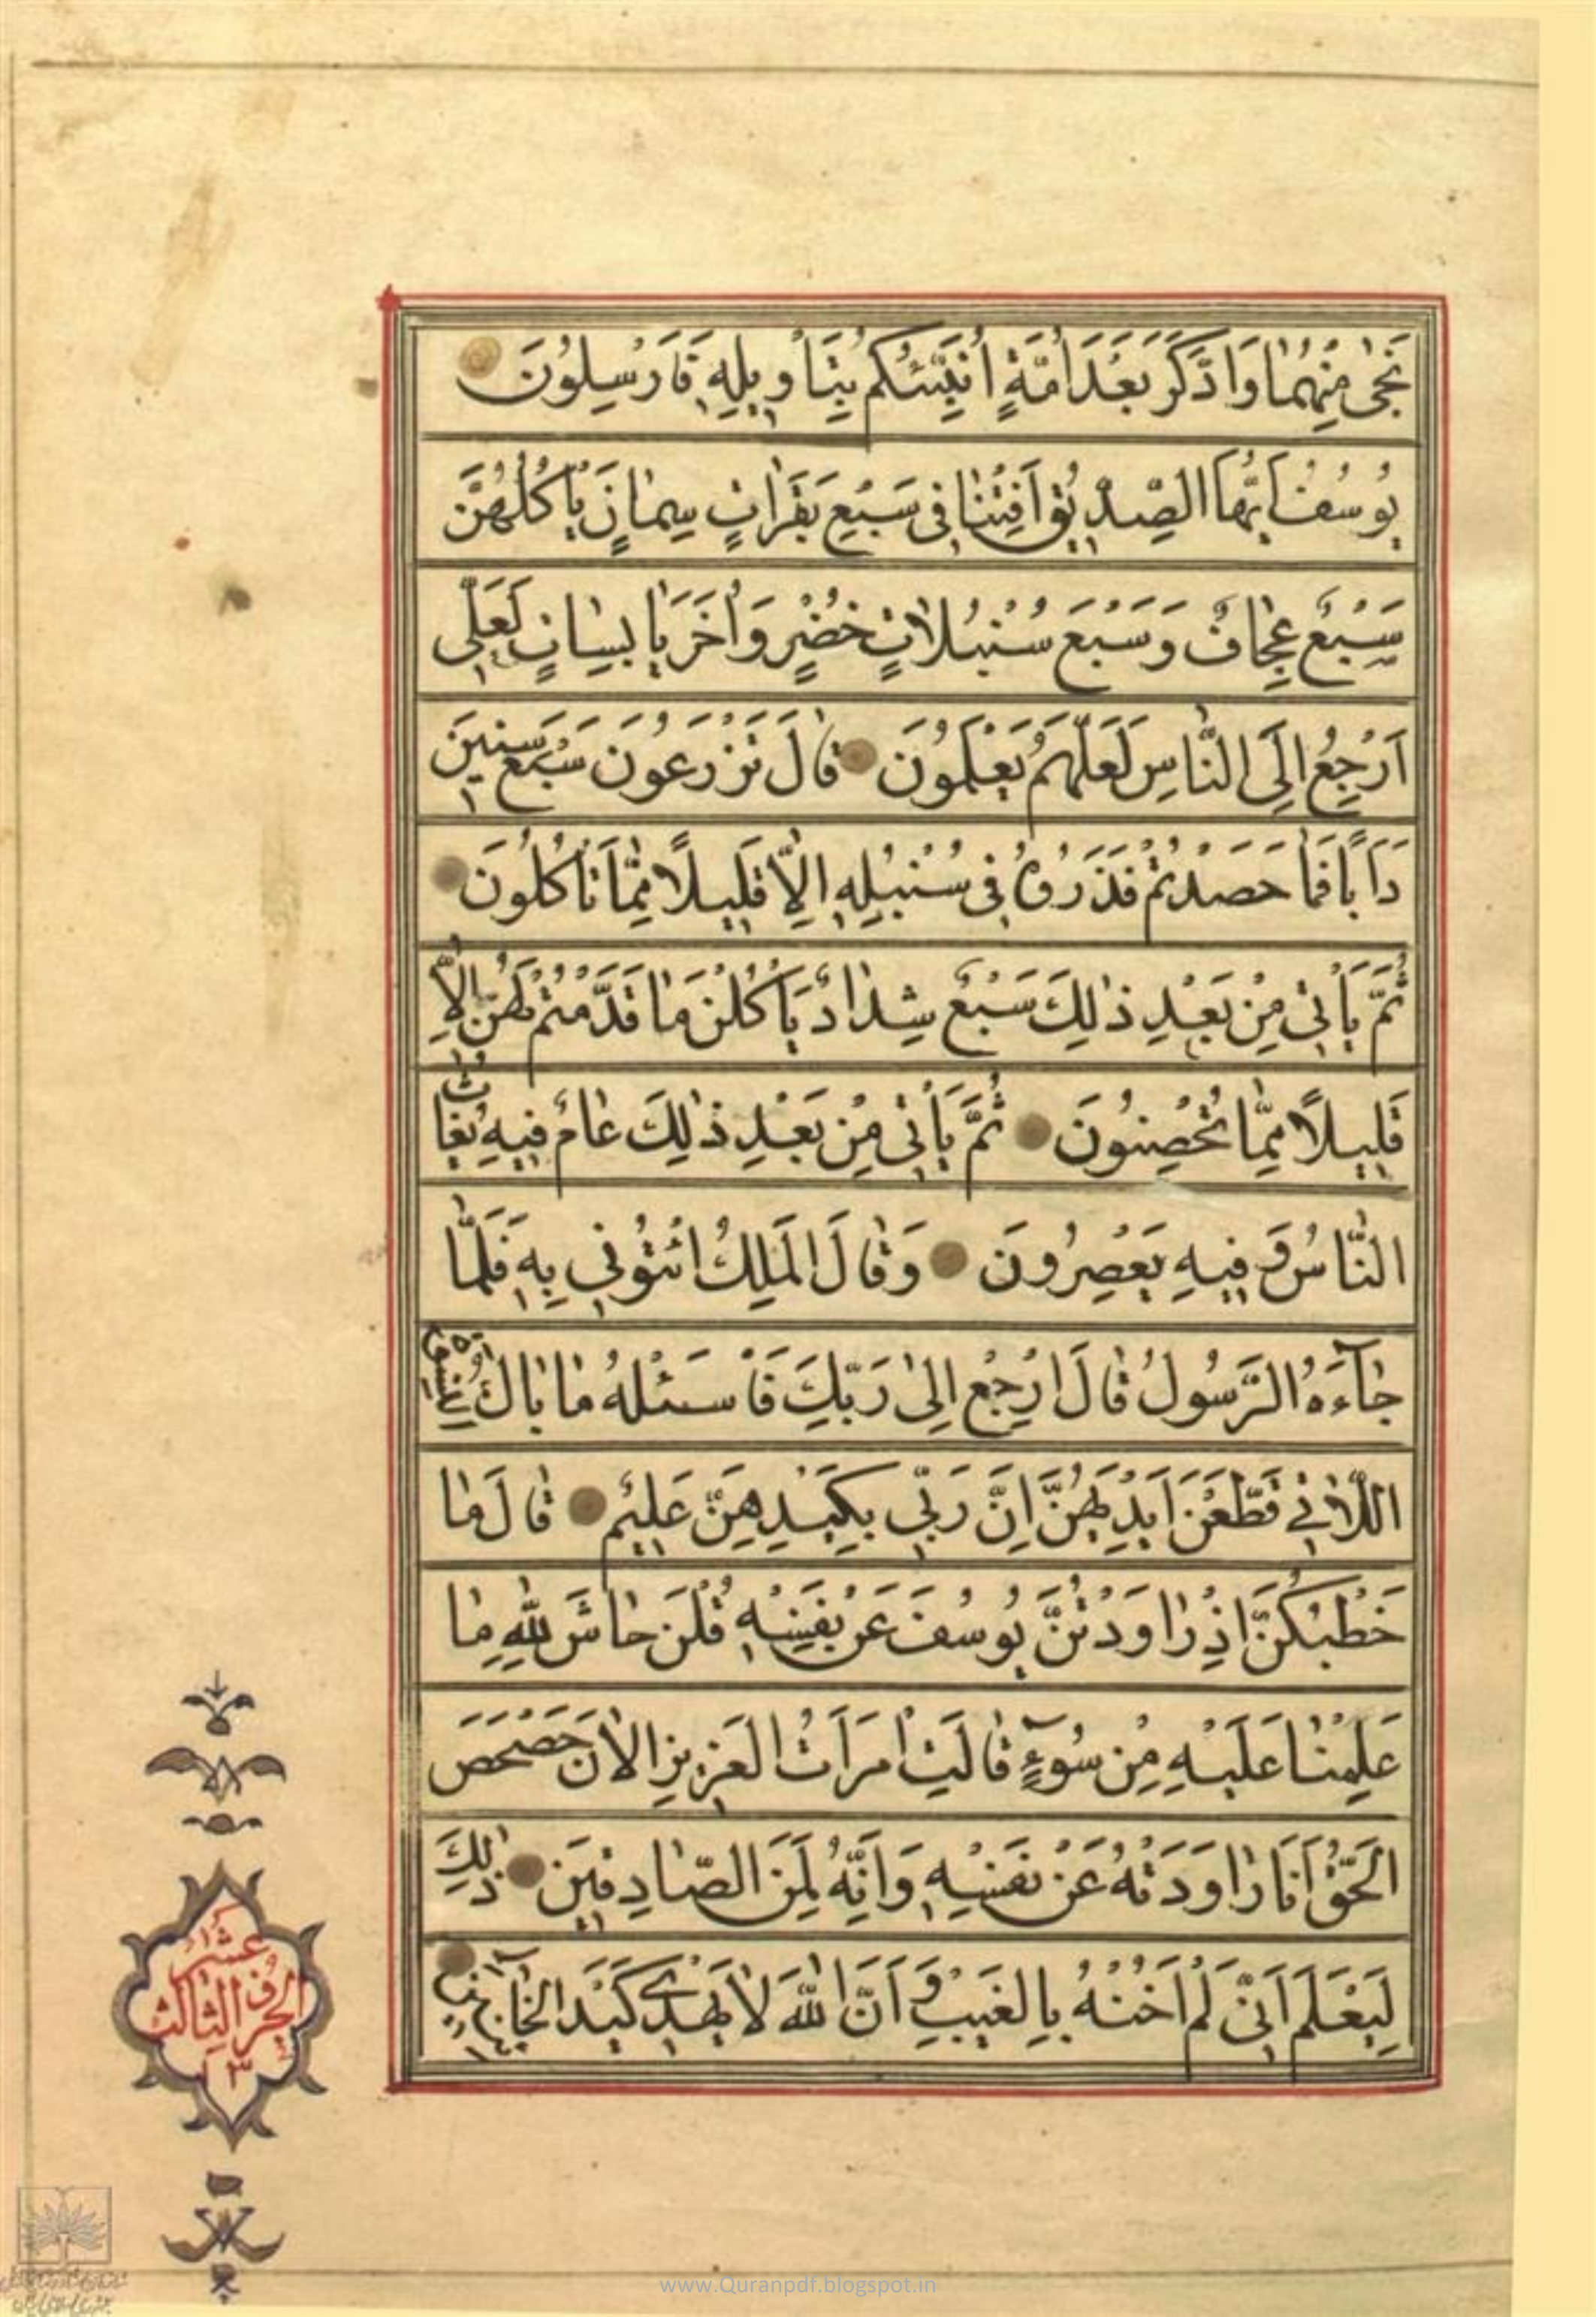 نَجٰى مِنْهُمٰا وَادَّكَرَ بَعْدَ اُمَّةٍ اُنَبِّئُكُمْ بِتَأْوِيلِهِ فَاَرْسِلُونَ
يُوسُفُ اَيُّهَا الصِّدِّيقُ اَفْتِنٰا فِي سَبْعِ بَقَرٰاتٍ سِمٰانٍ يَأْكُلُهُنَّ
سَبْعٌ عِجٰافٌ وَسَبْعِ سُنْبُلاٰتٍ خُضْرٍ وَاُخَرَ يٰابِسٰاتٍ لَعَلِّي
اَرْجِعُ اِلَى النّٰاسِ لَعَلَّهُمْ يَعْلَمُونَ قٰالَ تَزْرَعُونَ سَبْعَ سِنِينَ
دَاَبًا فَمٰا حَصَدْتُمْ فَذَرُوهُ فِي سُنْبُلِهِ اِلاّٰ قَلِيلًا مِمّٰا تَأْكُلُونَ
ثُمَّ يَأْتِي مِنْ بَعْدِ ذٰلِكَ سَبْعٌ شِدٰادٌ يَأْكُلْنَ مٰا قَدَّمْتُمْ لَهُنَّ اِلاّٰ
قَلِيلًا مِمّٰا تُحْصِنُونَ ثُمَّ يَأْتِي مِنْ بَعْدِ ذٰلِكَ عٰامٌ فِيهِ يُغٰاثُ
النّٰاسُ وَفِيهِ يَعْصِرُونَ وَقٰالَ الْمَلِكُ ائْتُونِي بِهِ فَلَمّٰا
جٰآءَهُ الرَّسُولُ قٰالَ ارْجِعْ اِلىٰ رَبِّكَ فَاسْئَلْهُ مٰا بٰالُ النِّسْوَةِ
اللّاٰتِي قَطَّعْنَ اَيْدِيَهُنَّ اِنَّ رَبِّي بِكَيْدِهِنَّ عَلِيمٌ قٰالَ مٰا
خَطْبُكُنَّ اِذْ رٰاوَدْتُنَّ يُوسُفَ عَنْ نَفْسِهِ قُلْنَ حٰاشَ لِلّٰهِ مٰا
عَلِمْنٰا عَلَيْهِ مِنْ سُوٓءٍ قٰالَتِ امْرَاَتُ الْعَزِيزِ الْاٰنَ حَصْحَصَ
الْحَقُّ اَنَا رٰاوَدْتُهُ عَنْ نَفْسِهِ وَاِنَّهُ لَمِنَ الصّٰادِقِينَ ذٰلِكَ
لِيَعْلَمَ اَنِّي لَمْ اَخُنْهُ بِالْغَيْبِ وَاَنَّ اللّٰهَ لاٰ يَهْدِي كَيْدَ الْخٰآئِنِينَ
الجزو الثالث عشر
١٣
www.Quranpdf.blogspot.in